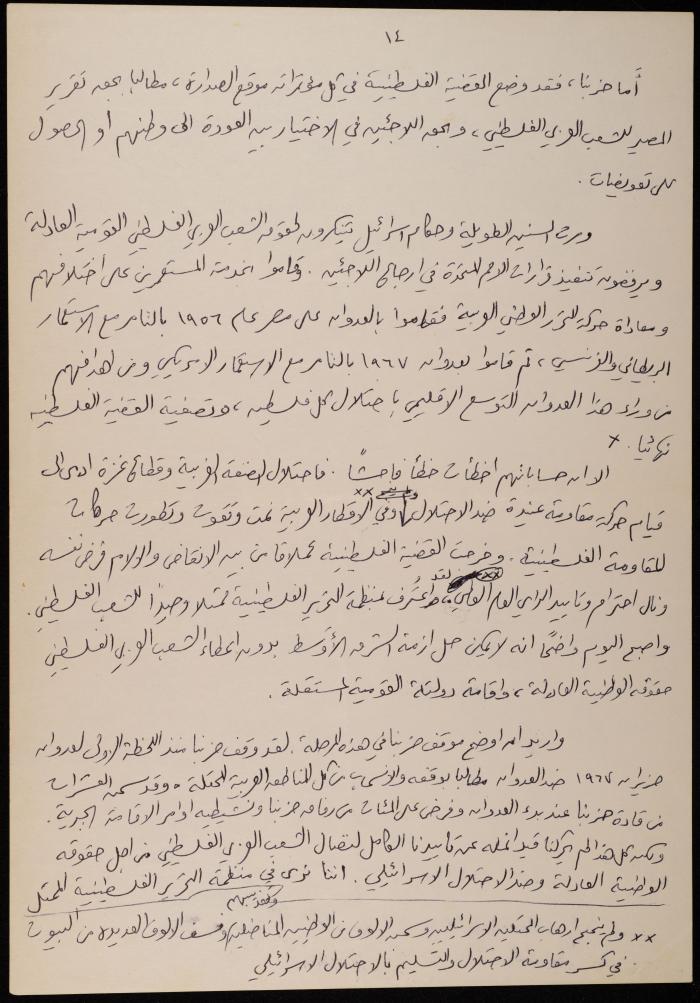 ١٤
أما حزبنا، فقد وضع القضية الفلسطينية في كل مؤتمراته موقع الصدارة، مطالبا بحق تقرير
المصير للشعب العربي الفلسطيني، وبحق اللاجئين في الاختيار بين العودة الى وطنهم او الحصول
على تعويضات.
ومرت السنين الطويلة وحكام اسرائيل يتنكرون لحقوق الشعب العربي الفلسطيني القومية العادلة
ويرفضون تنفيذ قرارات الامم المتحدة في ارجاع اللاجئين. وقاموا بخدمة المستعمرين على اختلافهم
ومعاداة حركة التحرر الوطني العربية فقاموا بالعدوان على مصر عام ١٩٥٦ بالتآمر مع الاستعمار
البريطاني والفرنسي، ثم قاموا بعدوان ١٩٦٧ بالتآمر مع الاستعمار الامريكي ومن اهدافهم
من وراء هذا العدوان التوسع الاقليمي باحتلال كل فلسطين، وتصفية القضية الفلسطينية
نهائيا. x
الا ان حساباتهم اخطأت خطأ فاحشًا. فاحتلال الضفة الغربية وقطاع غزة ادى الى
قيام حركة مقاومة عنيدة ضد الاحتلال xx وفي الاقطار العربية نمت وتقوت وتطورت حركات
المقاومة الفلسطينية. وخرجت القضية الفلسطينية عملاقا من بين الانقاض والالام فرض نفسه
ونال احترام وتأييد الراي العام العالمي، لقد اعتُرف بمنظمة التحرير الفلسطينية ممثلا وحيدًا للشعب الفلسطيني.
واصبح اليوم واضحًا انه لا يمكن حل ازمة الشرق الأوسط بدون اعطاء الشعب العربي الفلسطيني
حقوقه الوطنية العادلة، واقامة دولته القومية المستقلة.
واريد ان اوضح موقف حزبنا في هذه المرحلة. لقد وقف حزبنا منذ اللحظة الاولى لعدوان
حزيران ١٩٦٧ ضد العدوان مطالبا بوقفه والانسحاب من كل المناطق العربية المحتلة. وقد سجن العشرات
من قادة حزبنا عند بدء العدوان وفرض على المئات من رفاق حزبنا ونشيطيه اوامر الاقامة الجبرية.
ولكن كل هذا لم يحركنا قيد انملة عن تأييدنا الكامل لنضال الشعب العربي الفلسطيني من اجل حقوقه
الوطنية العادلة وضد الاحتلال الاسرائيلي. اننا نرى في منظمة التحرير الفلسطينية الممثل
xx ولم ينجح ارهاب المحتلين الاسرائيليين وسجن الالاف من الوطنيين المناضلين ونسف الالوف العديدة من البيوت
في كسر مقاومة الاحتلال والتسليم بالاحتلال الاسرائيلي